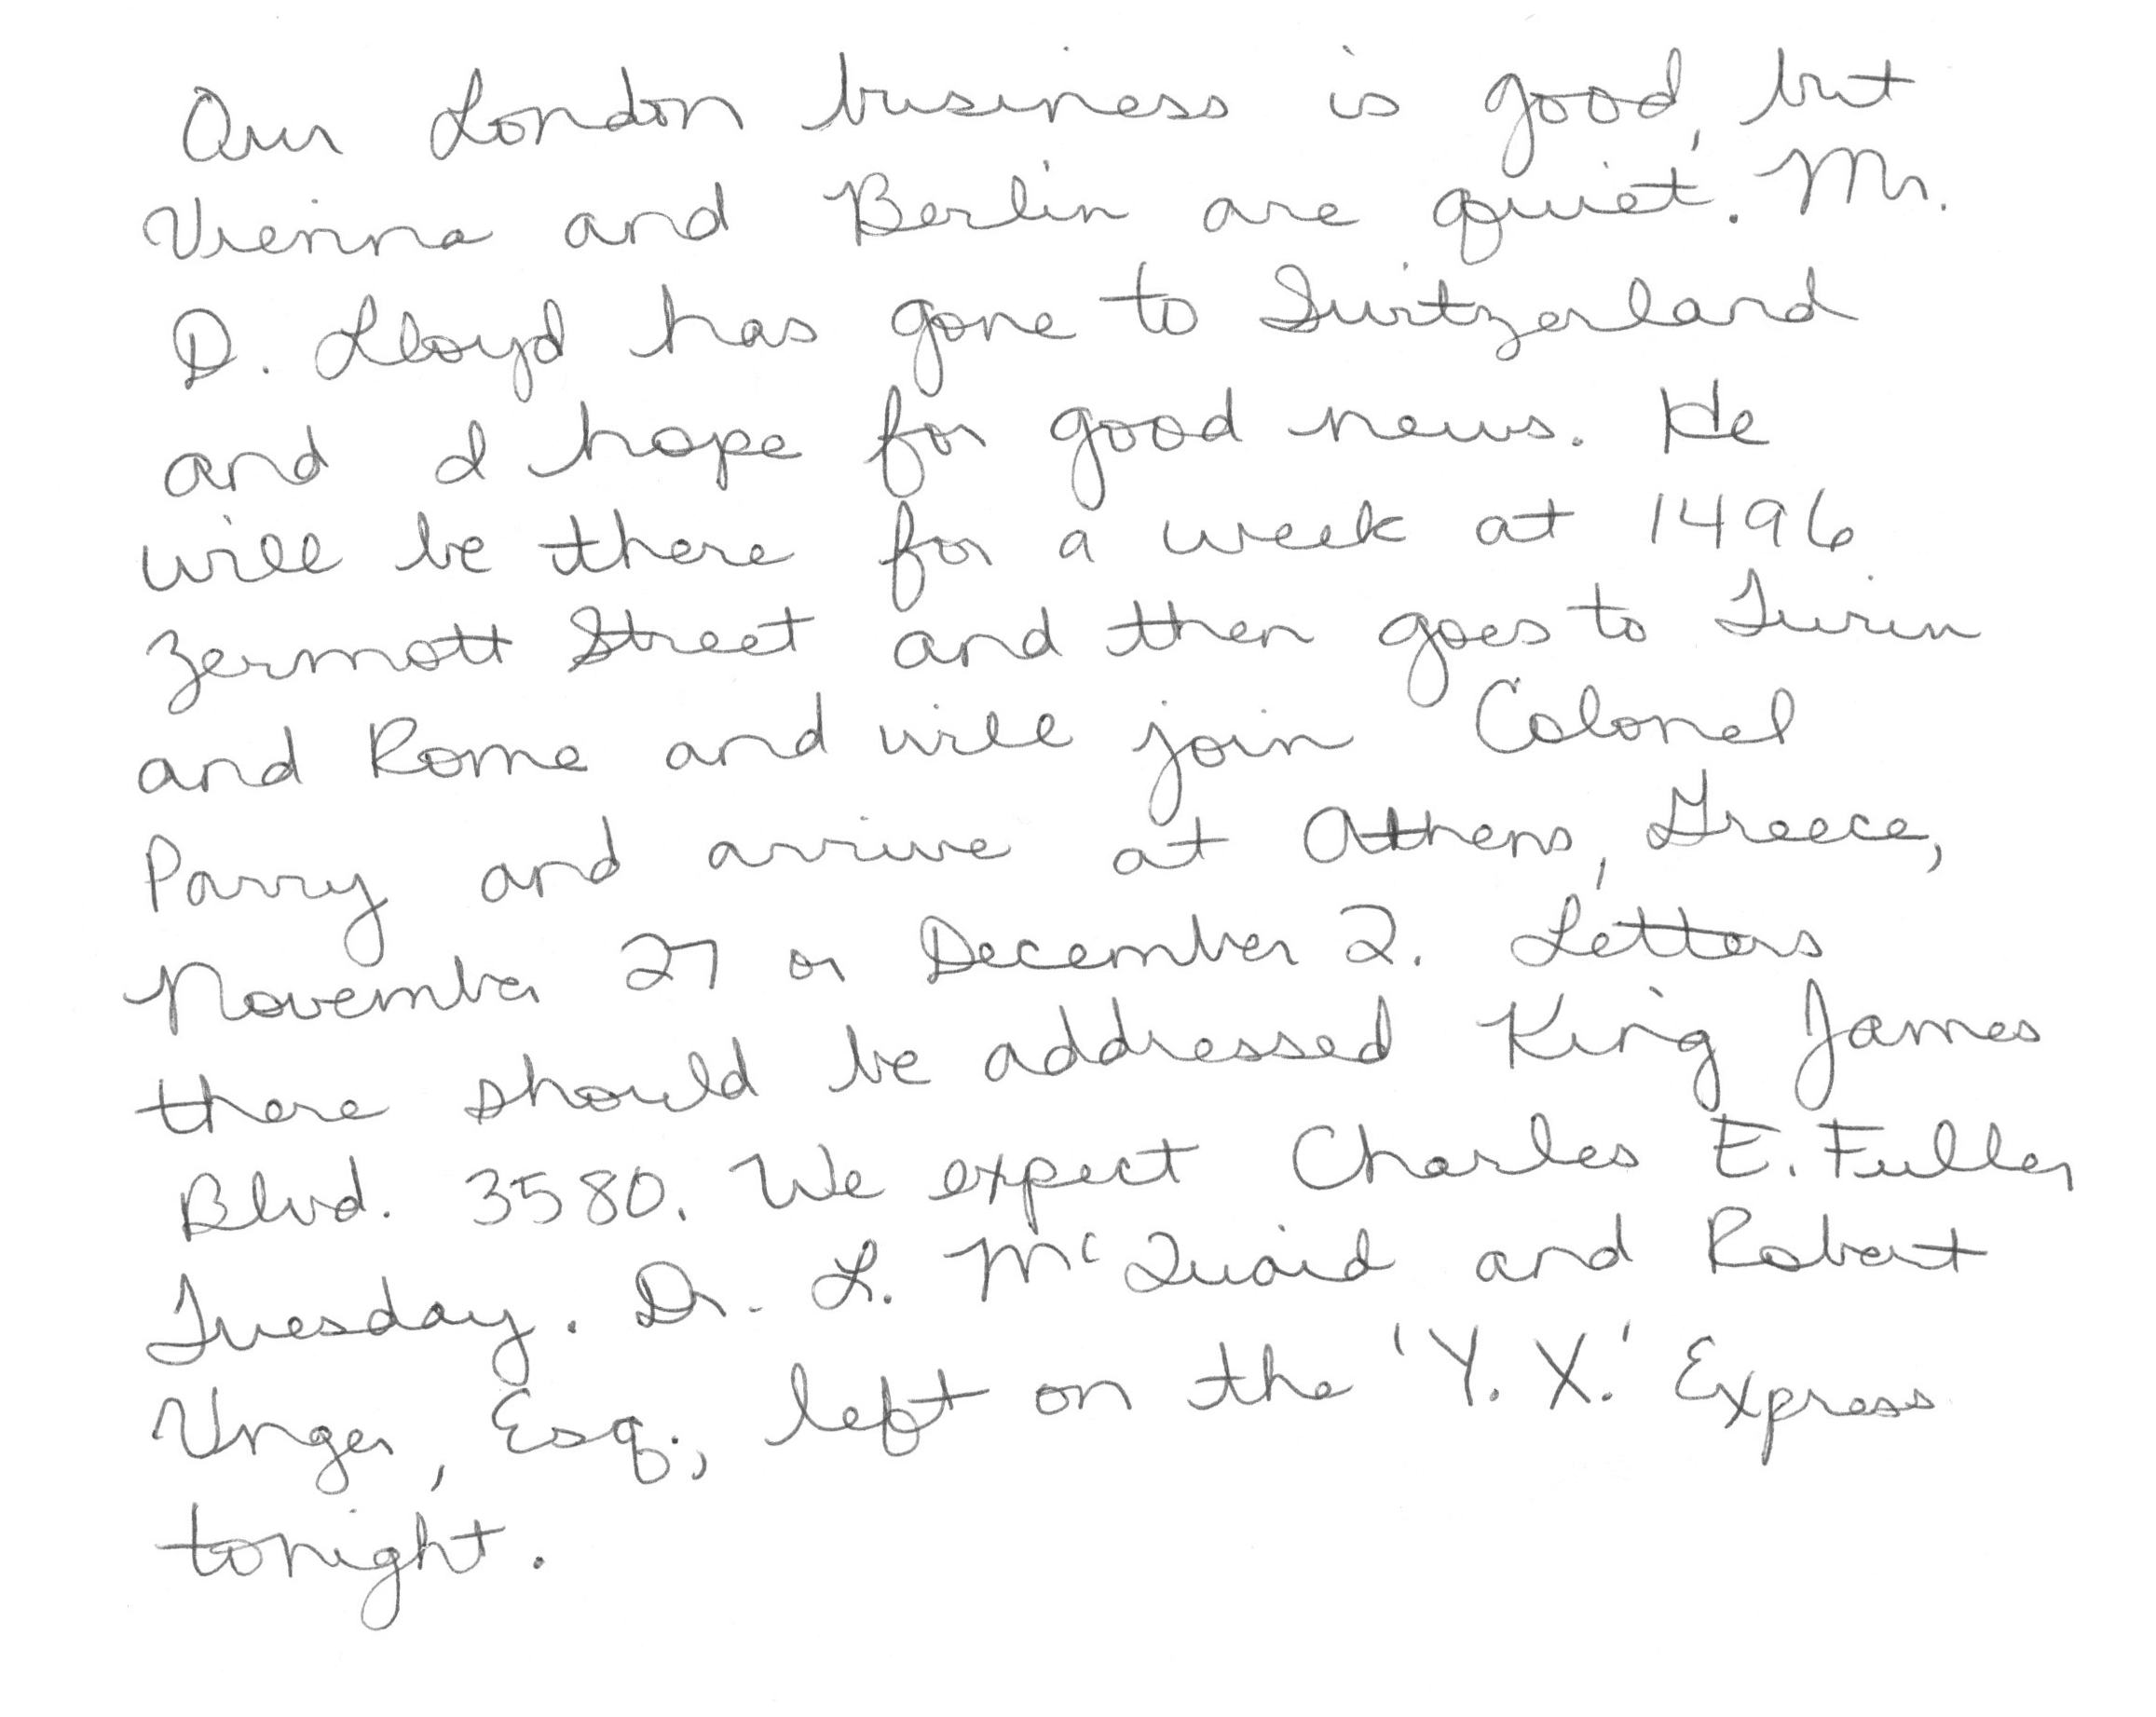 Our London business is good, but
Vienna and Berlin are quiet. Mr.
D. Lloyd has gone to Switzerland
and I hope for good news. He
will be there for a week at 1496
Zermott Street and then goes to Turin
and Rome and will join Colonel
Parry and arrive at Athens, Greece,
November 27 or December 2. Letters
there should be addressed King James
Blvd. 3580. We expect Charles E. Fuller
Tuesday. Dr. L. McQuaid and Robert
Unger, Esq., left on the 'Y. X.' Express
tonight.